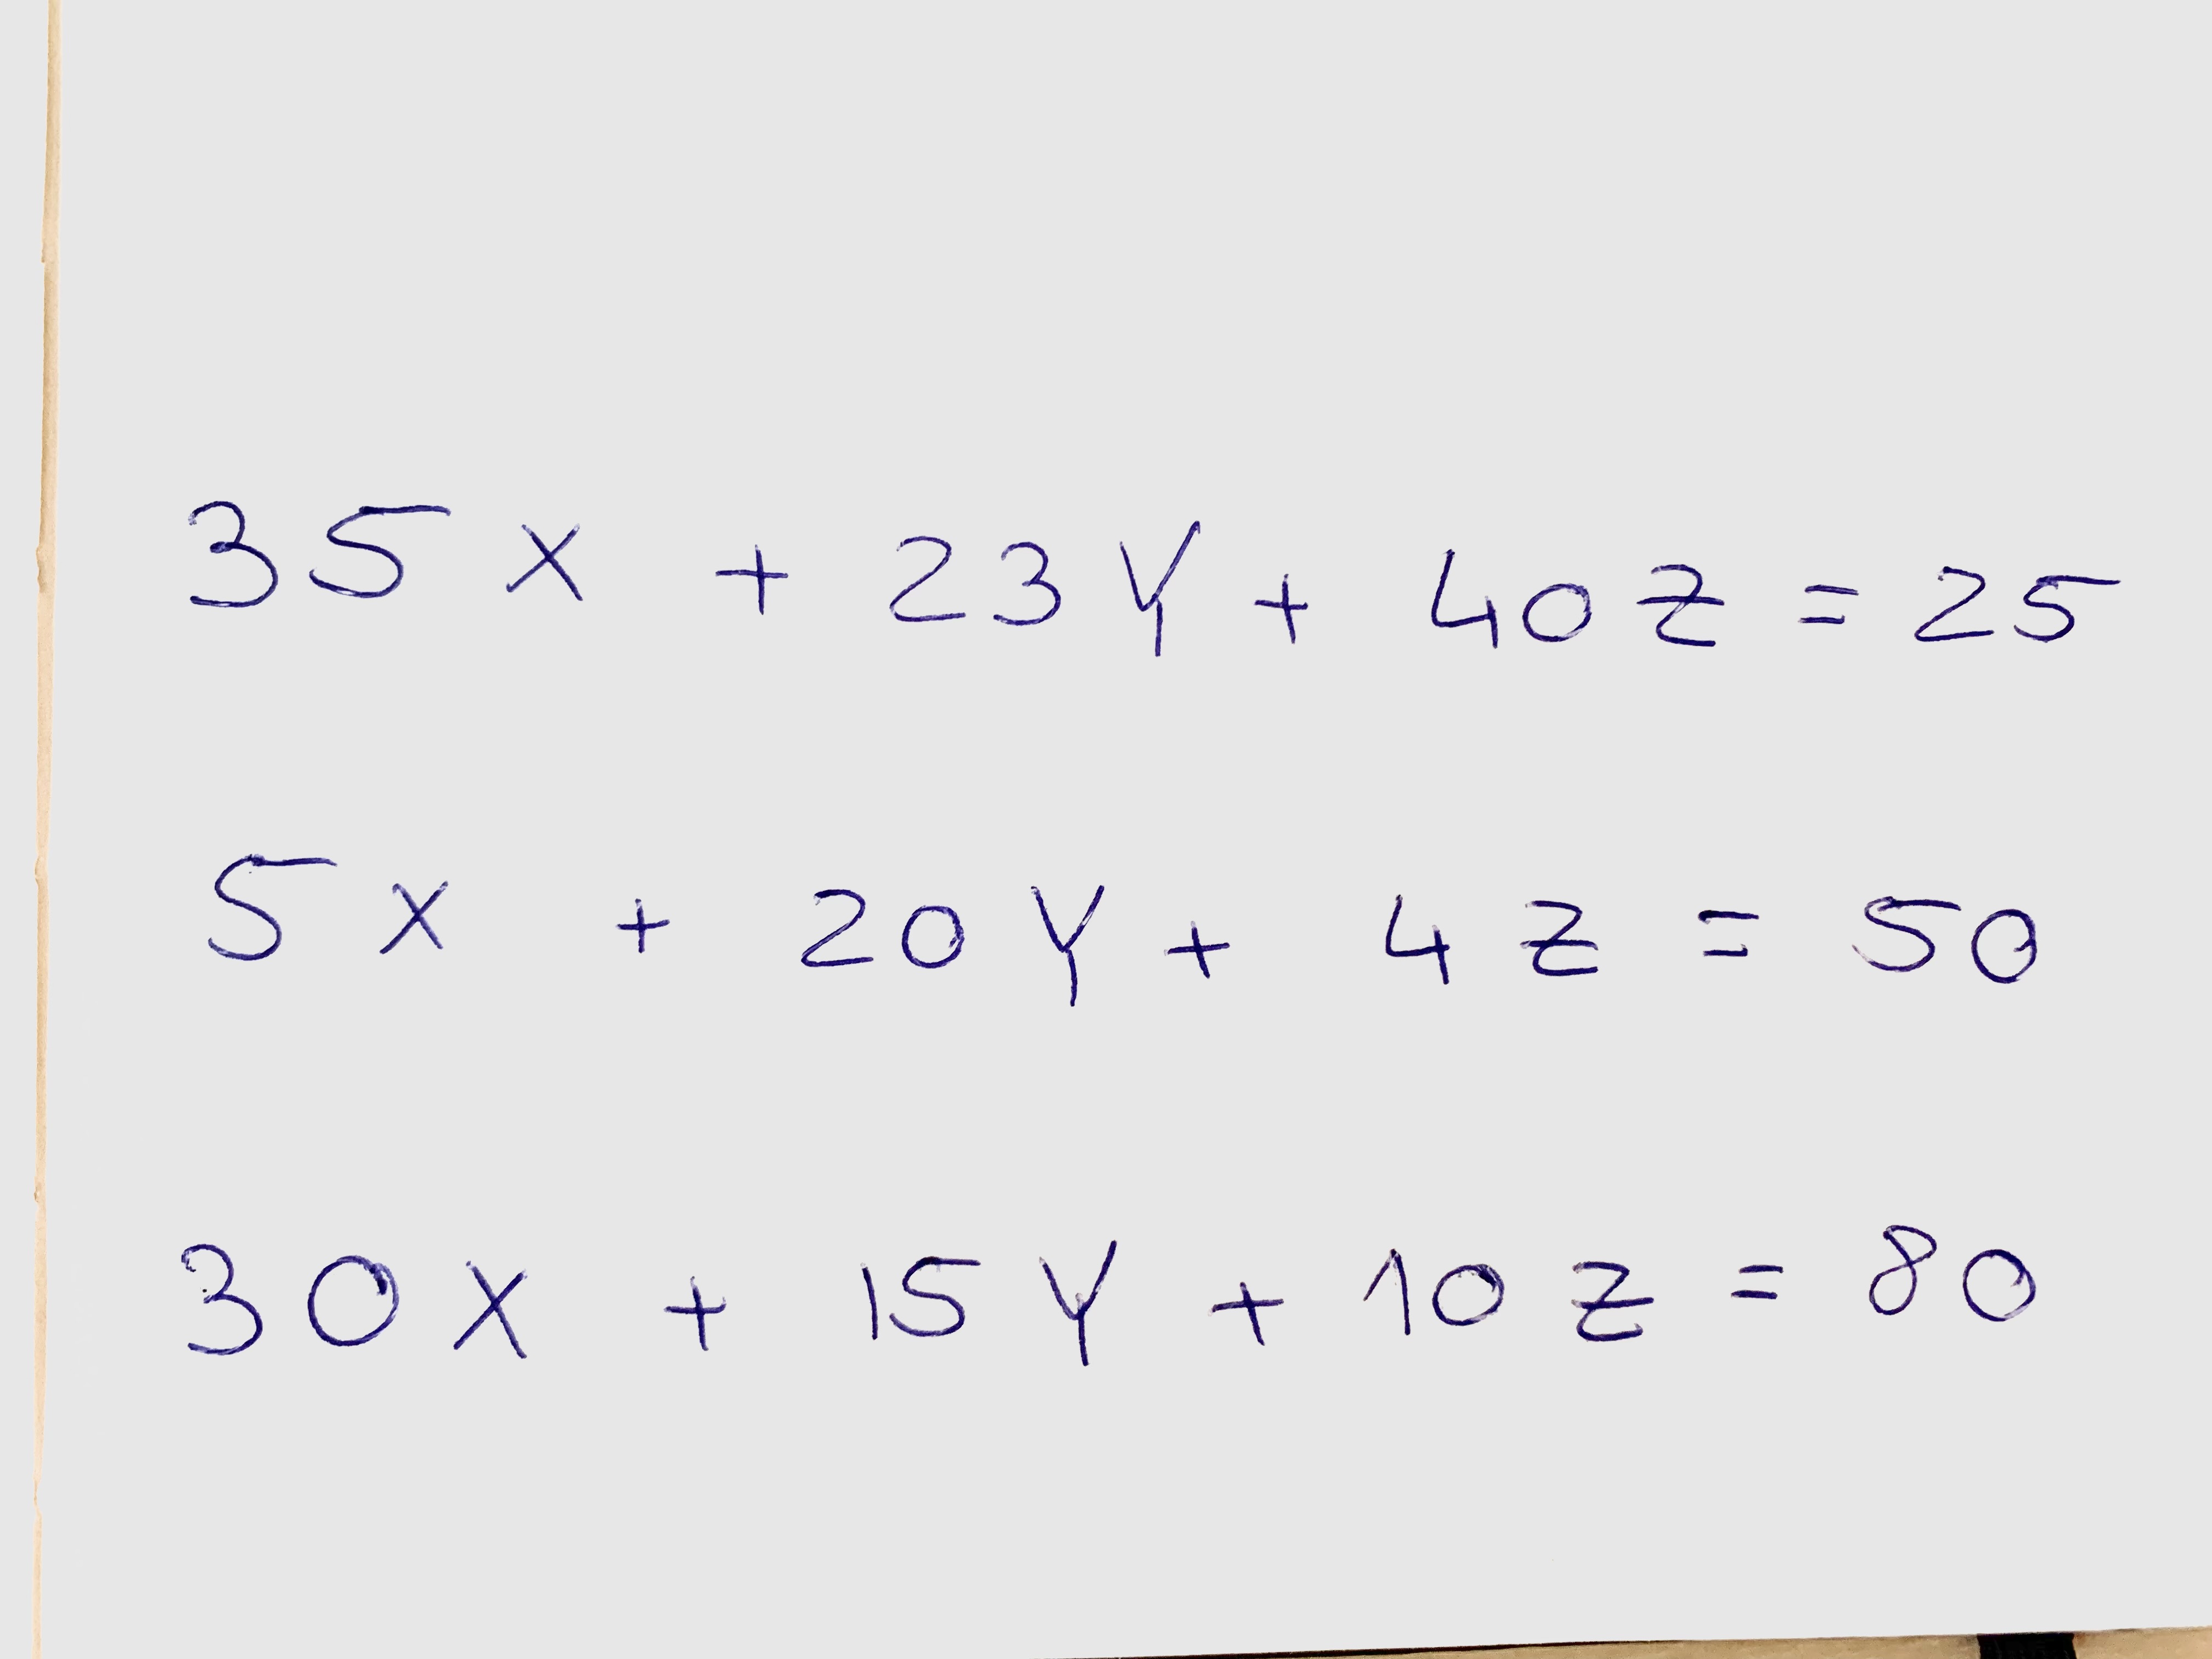 35x + 23y + 40z = 25
5x + 20y + 4z = 50
30x + 15y + 10z = 80